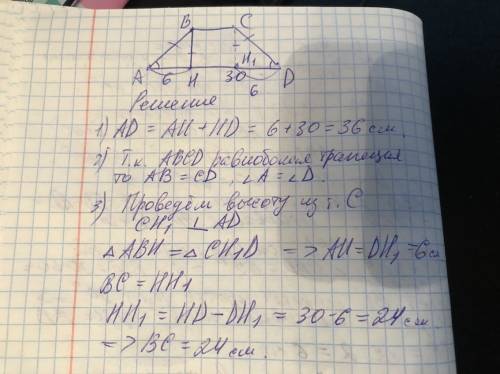 B C
H₁
A 6 H 30 D
6
Решение
1) AD = AH + HD = 6 + 30 = 36 см.
2) Т.к. ABCD равнобокая трапеция
то AB = CD ∠A = ∠D.
3) Проведём высоту из т. C
CH₁ ⊥ AD
△ABH = △CH₁D => AH = DH₁ = 6 см
BC = HH₁
HH₁ = HD - DH₁ = 30 - 6 = 24 см
=> BC = 24 см.